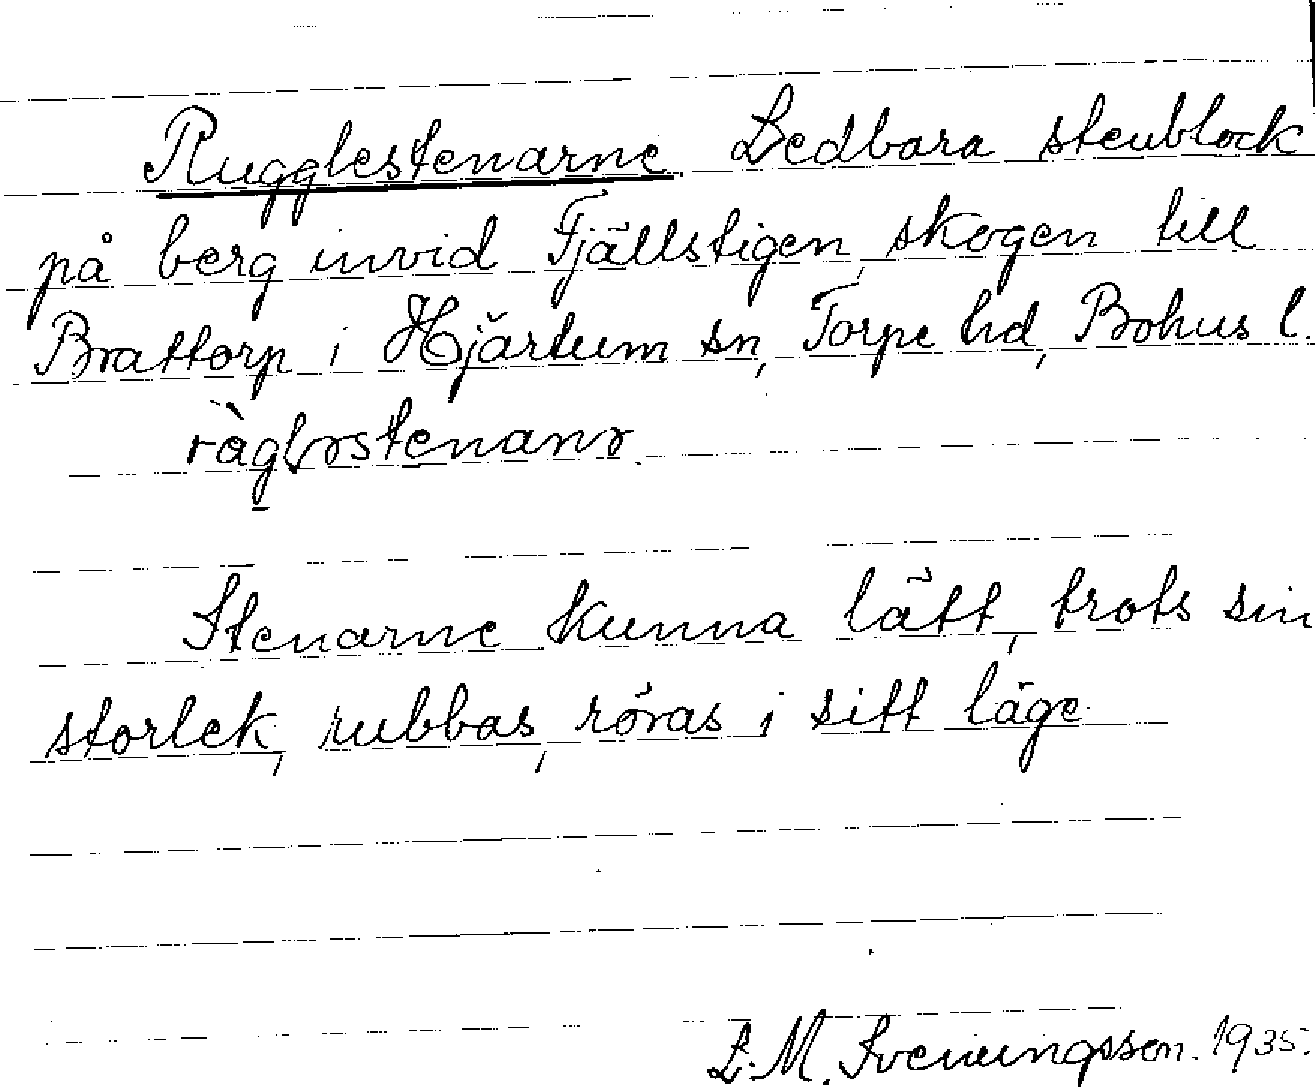 Rugglestenarne. Ledbara stenblock
på berg invid Fjällstigen, skogen till
Brattorp i Hjärtum sn, Torpe hd, Bohus l.
Stenarne kunna lätt, trots sin
storlek, rubbas, röras i sitt läge.
E. M. Sveningsson. 1935.